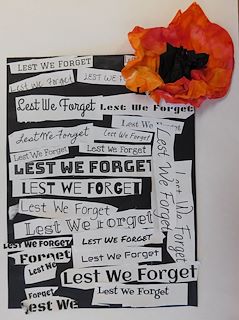 Lest We Forget
Lest We Forget
Lest We
Lest We Forget
Lest We Forget
Lest We Forget
Lest We
Lest We Forget
Lest We Forget
Lest We Forget
Lest We Forget
Lest We Forget
Lest We Forget
Lest We Forget
Lest We Forget
Lest We Forget
Lest We Forget
Lest We Forget
Lest We Forget
Forget
Lest We Forget
Lest We
Lest We Forget
Forget
Lest We Forget
Lest We
Lest We Forget
Lest We Forget